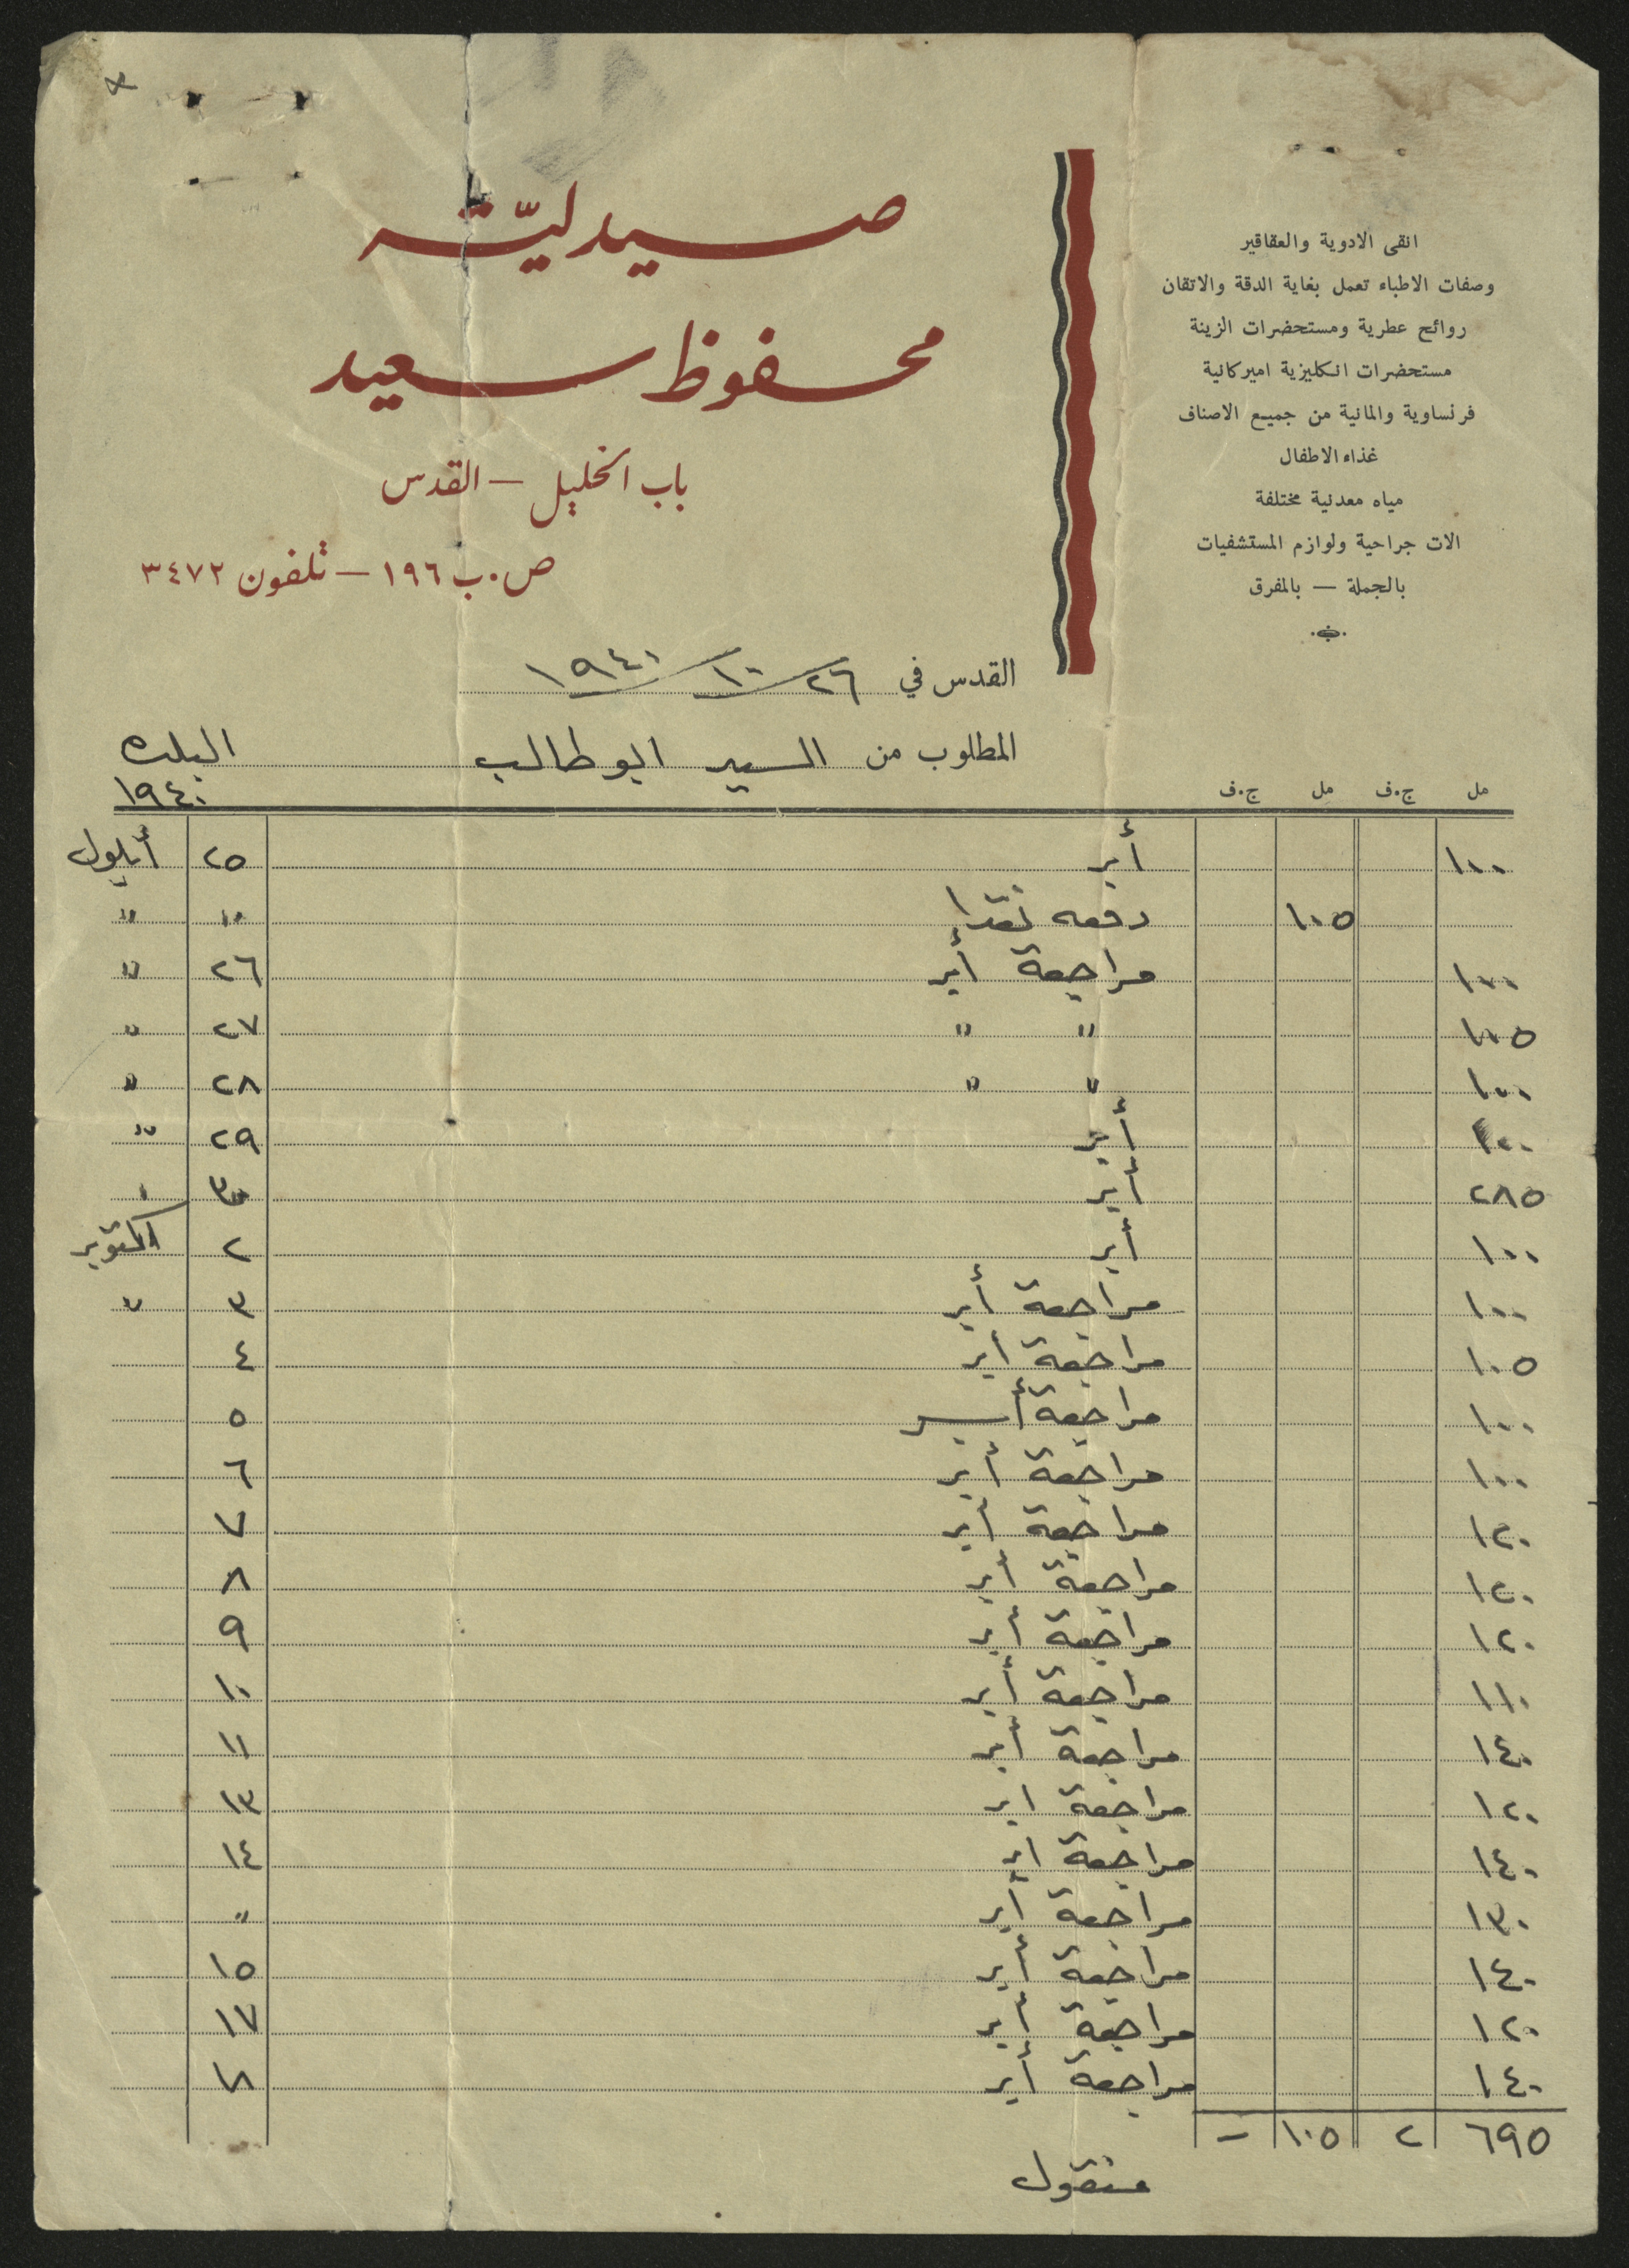 صيدليّة
محفوظ سعيد
باب الخليل — القدس
ص.ب ١٩٦ — تلفون ٣٤٧٢
انقى الادوية والعقاقير
وصفات الاطباء تعمل بغاية الدقة والاتقان
روائح عطرية ومستحضرات الزينة
مستحضرات انكليزية اميركانية
فرنساوية والمانية من جميع الاصناف
غذاء الاطفال
مياه معدنية مختلفة
الات جراحية ولوازم المستشفيات
بالجملة — بالمفرق
القدس في ٢٦/١٠/١٩٤٠
المطلوب من السيد ابو طالب البلده
مل ج.ف مل ج.ف ١٩٤٠
١٠٠ أبر ٢٥ أيلول
١٠٥ دفعه نقدا " "
١٠٠ مراجعة أبر ٢٦ "
١٠٥ " " ٢٧ "
١٠٠ " " ٢٨ "
١٠٠ أبر ٢٩ "
٢٨٥ أبر ٣٠ "
١٠٠ أبر ٢ اكتوبر
١٠٠ مراجعة أبر ٣ "
١٠٥ مراجعة أبر ٤
١٠٠ مراجعة أبر ٥
١٠٠ مراجعة أبر ٦
١٢٠ مراجعة أبر ٧
١٢٠ مراجعة أبر ٨
١٢٠ مراجعة أبر ٩
١١٠ مراجعة أبر ١٠
١٤٠ مراجعة أبر ١١
١٢٠ مراجعة ابر ١٣
١٤٠ مراجعة ابر ١٤
١٣٠ مراجعة أبر "
١٤٠ مراجعة أبر ١٥
١٢٠ مراجعة أبر ١٧
١٤٠ مراجعة أبر ١٨
٦٩٥ ٢ ١٠٥ –
منقول